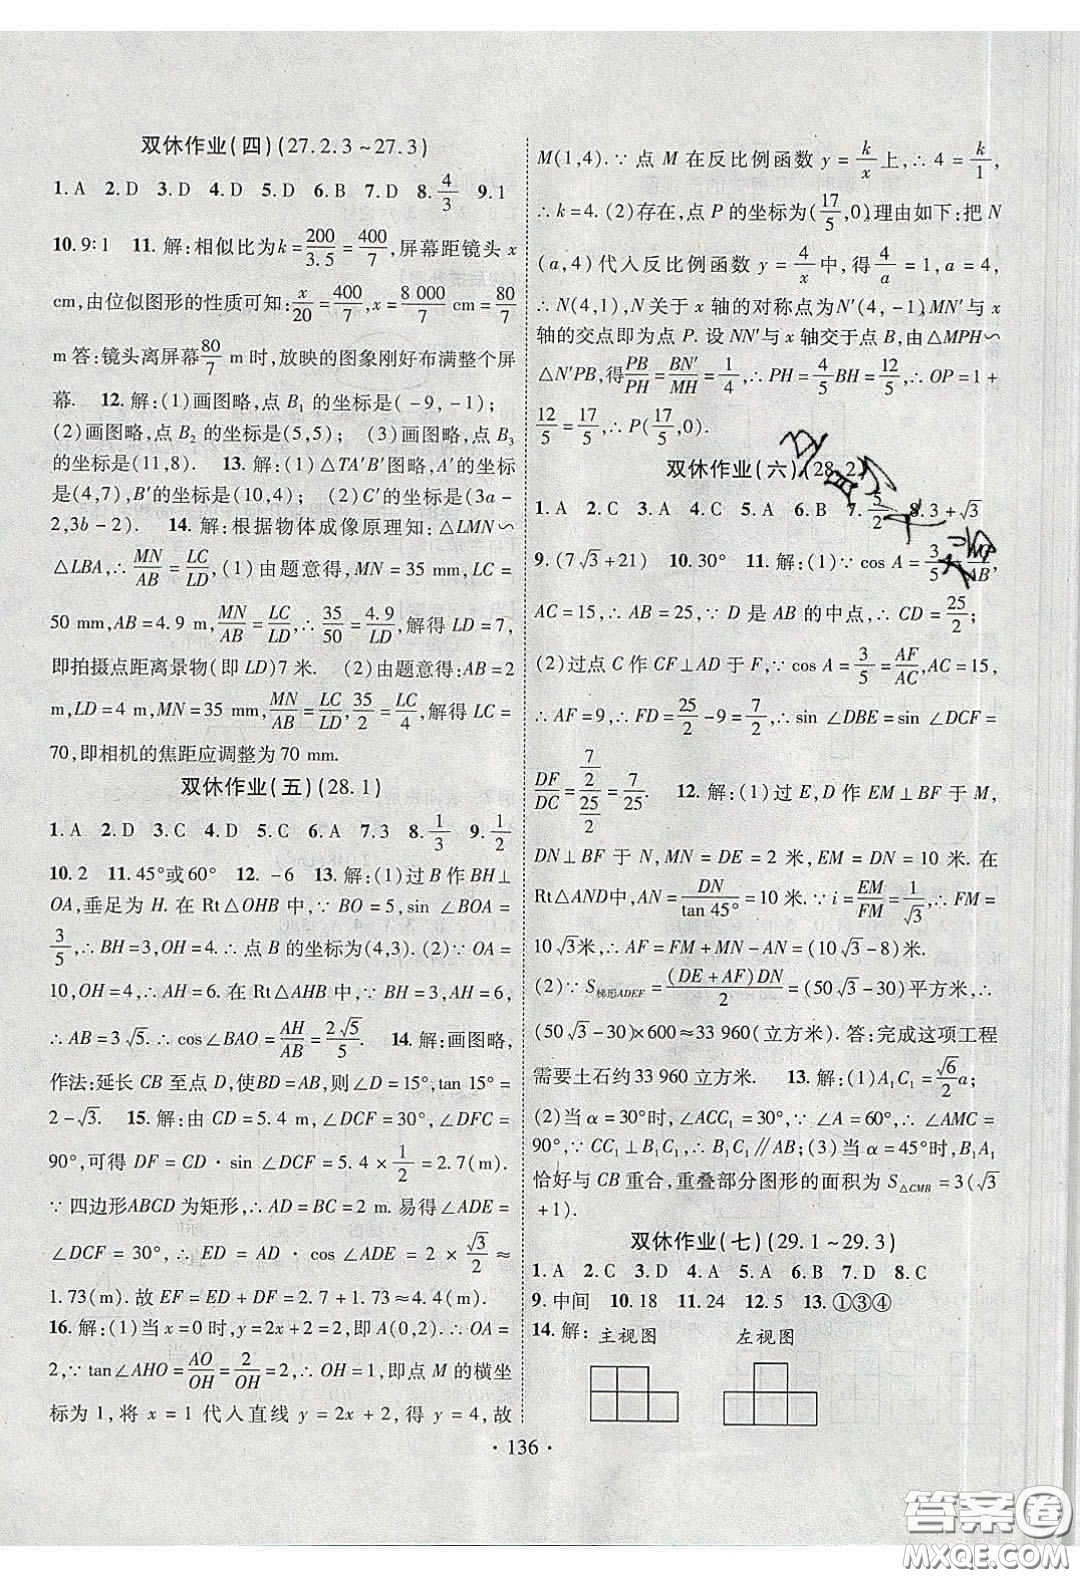 双休作业(四)(27.2.3～27.3)
1.A 2.D 3.D 4.A 5.D 6.B 7.D 8.4/3 9.1
10.9∶1 11.解:相似比为k=200/3.5=400/7,屏幕距镜头x
cm,由位似图形的性质可知:x/20=400/7,x=8 000/7 cm=80/7
m 答:镜头离屏幕80/7 m时,放映的图象刚好布满整个屏
幕. 12.解:(1)画图略,点B₁的坐标是(-9,-1);
(2)画图略,点B₂的坐标是(5,5); (3)画图略,点B₃
的坐标是(11,8). 13.解:(1)△TA′B′图略,A′的坐
标是(4,7),B′的坐标是(10,4); (2)C′的坐标是(3a-
2,3b-2). 14.解:根据物体成像原理知:△LMN∽
△LBA,∴MN/AB=LC/LD,(1)由题意得,MN=35 mm,LC=
50 mm,AB=4.9 m,MN/AB=LC/LD,∴35/50=4.9/LD,解得LD=7,
即拍摄点距离景物(即LD)7米. (2)由题意得:AB=2
m,LD=4 m,MN=35 mm,MN/AB=LC/LD,35/2=LC/4,解得LC=
70,即相机的焦距应调整为70 mm.
双休作业(五)(28.1)
1.A 2.D 3.C 4.D 5.C 6.A 7.3 8.1/3 9.1/2
10.2 11.45°或60° 12.-6 13.解:(1)过B作BH⊥
OA,垂足为H.在Rt△OHB中,∵BO=5,sin∠BOA=
3/5,∴BH=3,OH=4.∴点B的坐标为(4,3).(2)∵OA=
10,OH=4,∴AH=6.在Rt△AHB中,∵BH=3,AH=6,
∴AB=3√5.∴cos∠BAO=AH/AB=2√5/5. 14.解:画图略,
作法:延长CB至点D,使BD=AB,则∠D=15°,tan 15°=
2-√3. 15.解:由CD=5.4 m,∠DCF=30°,∠DFC=
90°,可得DF=CD·sin∠DCF=5.4×1/2=2.7(m).
∵四边形ABCD为矩形,∴AD=BC=2 m.易得∠ADE=
∠DCF=30°,∴ED=AD·cos∠ADE=2×√3/2≈
1.73(m).故EF=ED+DF=2.7+1.73≈4.4(m).
16.解:(1)当x=0时,y=2x+2=2,即A(0,2).∴OA=
2,∵tan∠AHO=AO/OH=2/OH=2,∴OH=1,即点M的横坐
标为1,将x=1代入直线y=2x+2,得y=4,故
M(1,4).∵点M在反比例函数y=k/x上,∴4=k/1,
∴k=4.(2)存在,点P的坐标为(17/5,0).理由如下:把N
(a,4)代入反比例函数y=4/x中,得4/a=1,a=4,
∴N(4,1),N关于x轴的对称点为N′(4,-1),MN′与x
轴的交点即为点P.设NN′与x轴交于点B,由△MPH∽
△N′PB,得PB/PH=BN′/MH=1/4,∴PH=4/5BH=12/5,∴OP=1+
12/5=17/5,∴P(17/5,0).
双休作业(六)(28.2)
1.A 2.C 3.C 4.A 5.A 6.B 7.5/2 8.3+√3
9.(7√3+21) 10.30° 11.解:(1)∵cos A=3/5=AC/AB,
AC=15,∴AB=25,∵D是AB的中点,∴CD=25/2;
(2)过点C作CF⊥AD于F,∵cos A=3/5=AF/AC,AC=15,
∴AF=9,∴FD=25/2-9=7/2,∴sin∠DBE=sin∠DCF=
DF/DC=(7/2)/(25/2)=7/25. 12.解:(1)过E,D作EM⊥BF于M,
DN⊥BF于N,MN=DE=2米,EM=DN=10米.在
Rt△AND中,AN=DN/tan 45°=10米.∵i=EM/FM=1/√3,∴FM=
10√3米.∴AF=FM+MN-AN=(10√3-8)米.
(2)∵S梯形ADEF=(DE+AF)DN/2=(50√3-30)平方米,∴
(50√3-30)×600≈33 960(立方米).答:完成这项工程
需要土石约33 960立方米. 13.解:(1)A₁C₁=√6/2a;
(2)当α=30°时,∠ACC₁=30°,∵∠A=60°,∴∠AMC=
90°,∵CC₁⊥B₁C₁,∴B₁C₁∥AB;(3)当α=45°时,B₁A₁
恰好与CB重合,重叠部分图形的面积为S△CMB=3(√3
+1).
双休作业(七)(29.1～29.3)
1.A 2.C 3.D 4.A 5.A 6.B 7.D 8.C
9.中间 10.18 11.24 12.5 13.①③④
14.解: 主视图 左视图
· 136 ·
答案圈
MXQE.COM